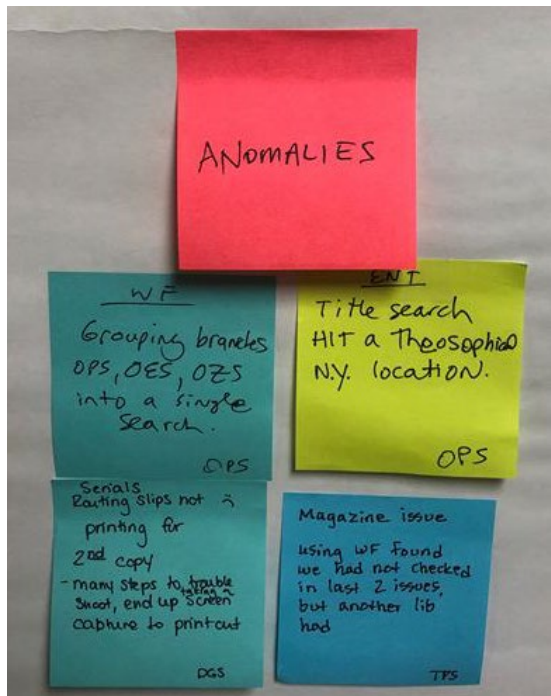 ANOMALIES
WF
Grouping branches
OPS, OES, OZS
into a single
search.
OPS
ENT
Title search
HIT a Theosophical
N.Y. location.
OPS
Serials
Routing slips not
printing for
2nd copy
- many steps to trouble
shoot, end up taking a screen
capture to printout
DGS
Magazine issue
using WF found
we had not checked
in last 2 issues,
but another lib
had
TPS